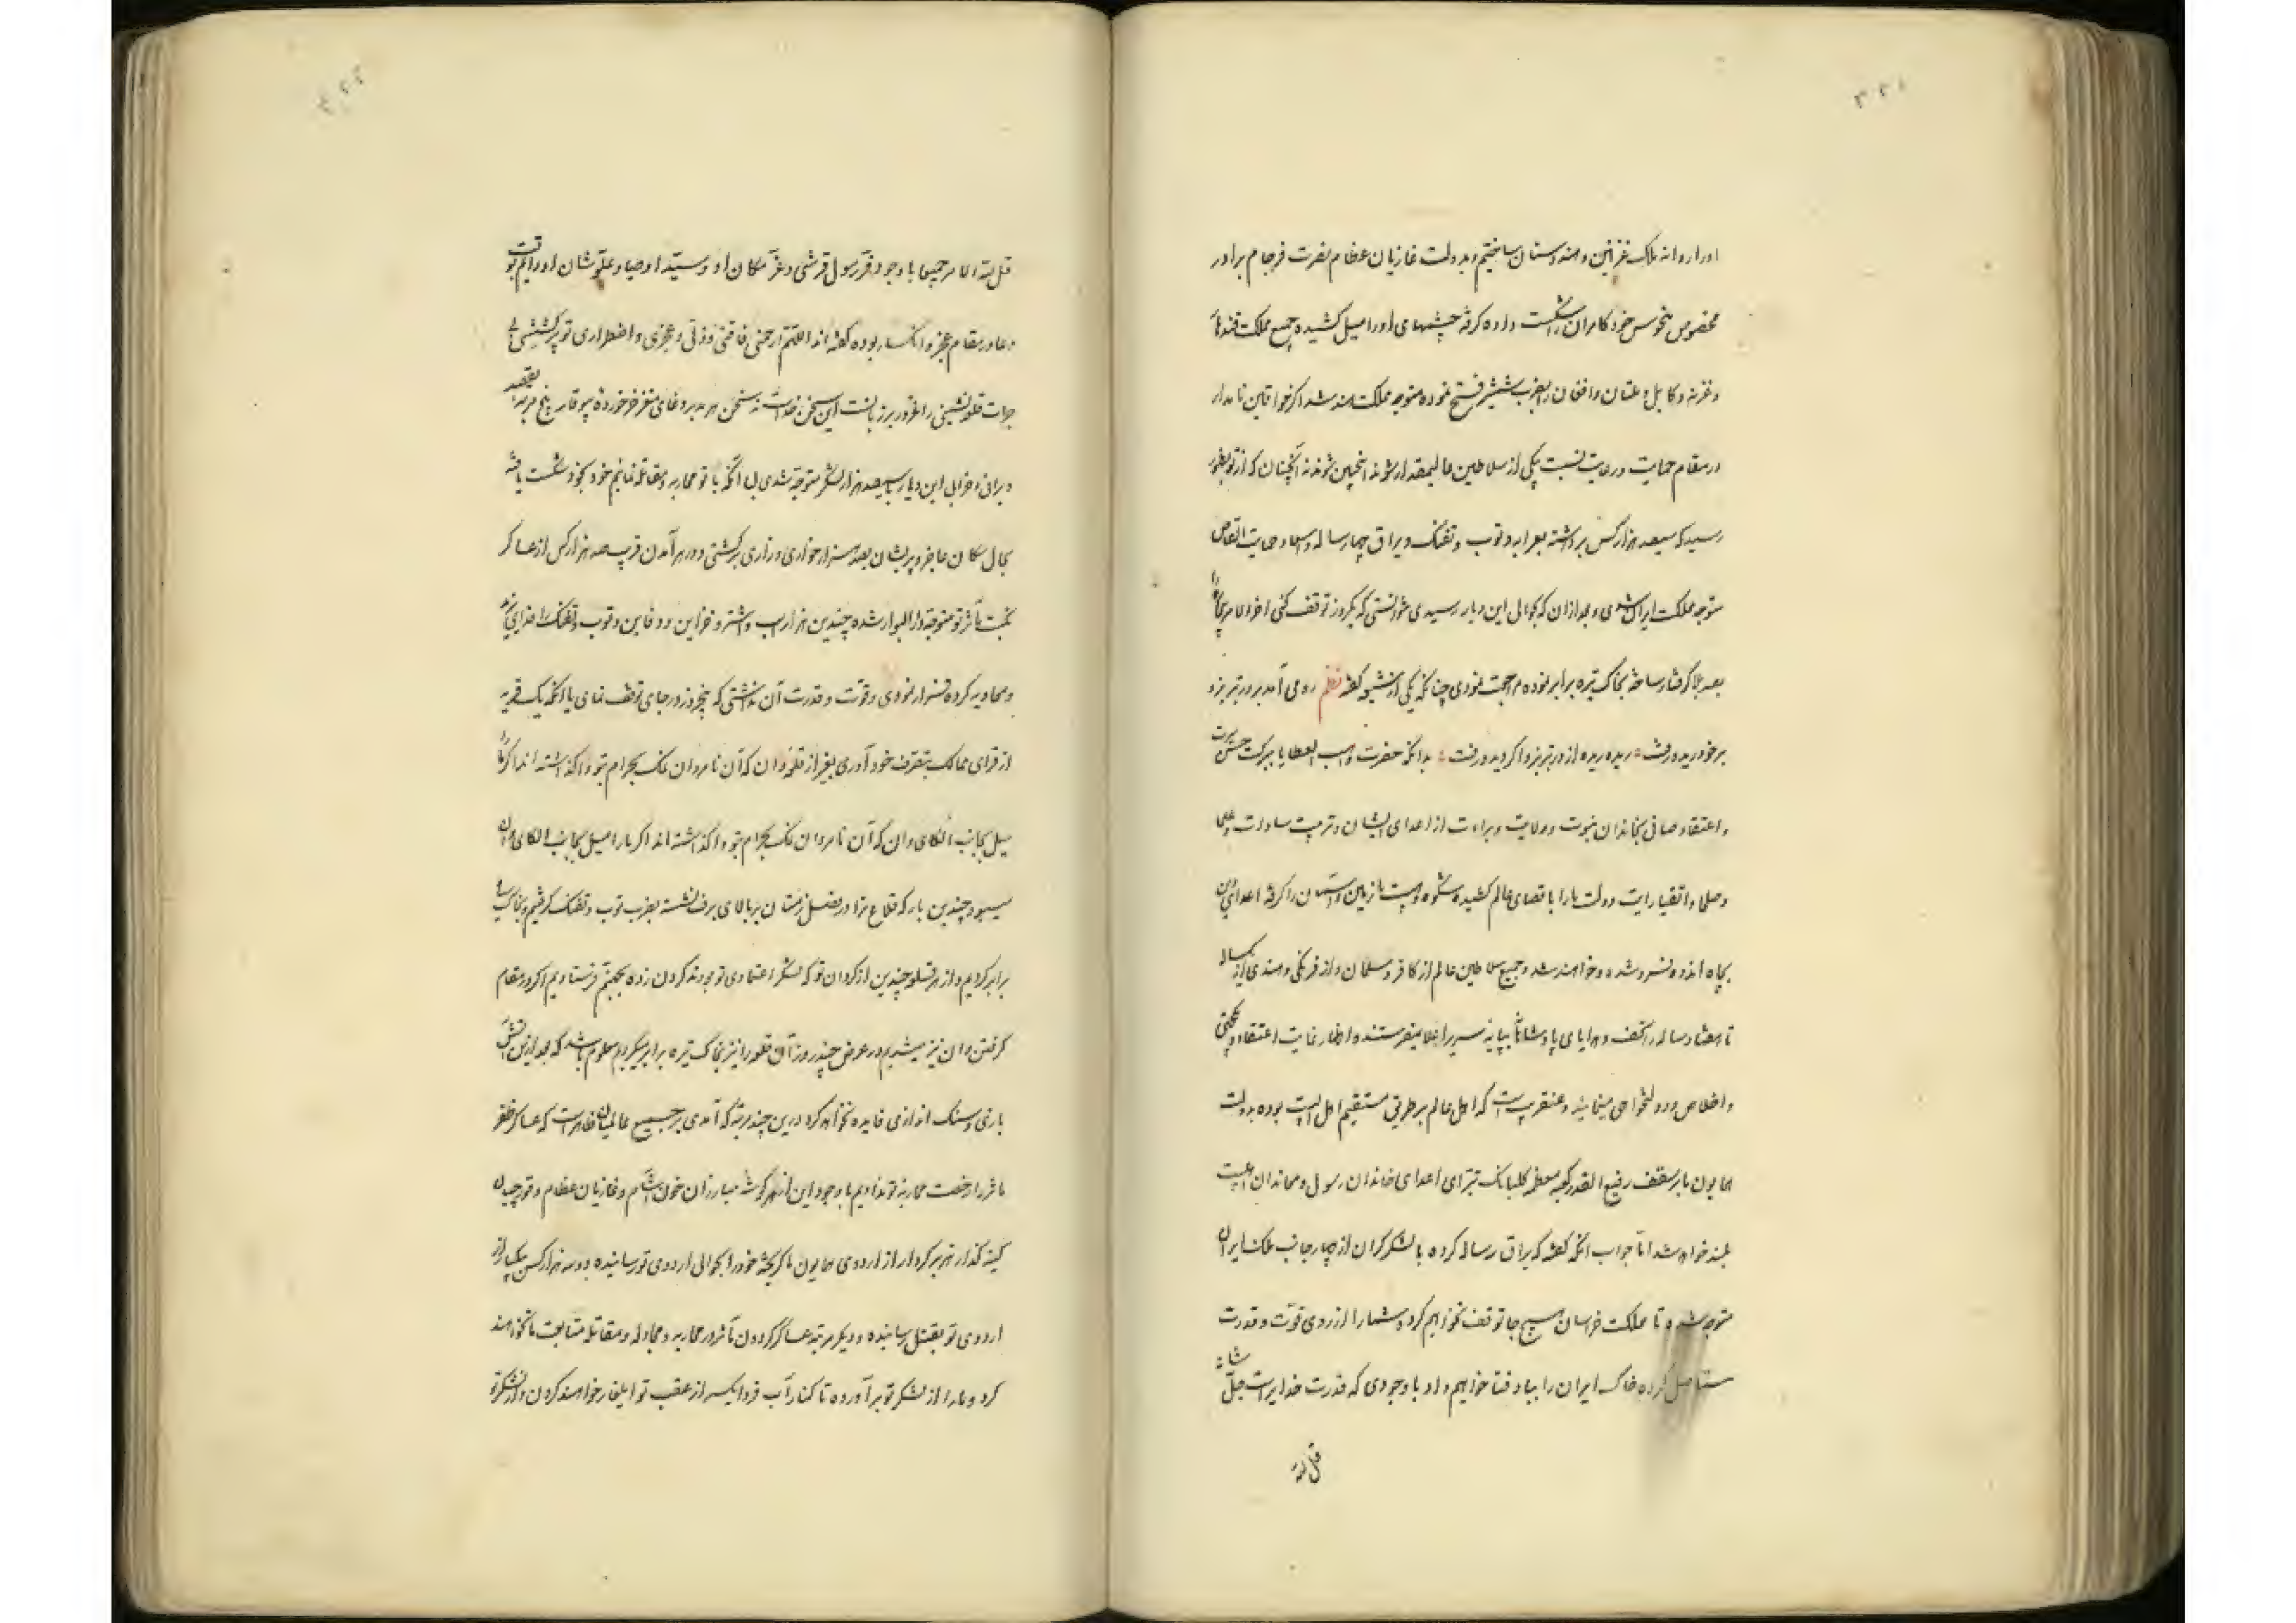 اورا روانه ملک غزنین و هندوستان ساختیم و بدولت غازیان عظام نصرت فرجام برادر
مخصوص منحوس خود کامران را شکست داده گرفته چشمهای او را میل کشیده جمیع مملکت قندهار
و غزنه و کابل و ملتان و افغان را بضرب شمشیر فتح نموده متوجه مملکت هند شد اگر خواقین نامدار
در مقام حمایت و رعایت نسبت یکی از سلاطین عالیمقدار شوند اینچنین شوند نه آنچنان که از تو بظهور
رسید که سیصد هزار کس برداشته بعرابه و توپ و تفنگ و یراق چهار ساله و حمایت القاص
متوجه مملکت ایران شدی و بعد از ان که بحوالی این دیار رسیدی نتوانستی که یکروز توقف کنی اخر الامر
بصد بلا گرفتار ساخته بخاک تیره برابر نموده مراجعت نمودی چنانکه یکی از شیعه گفته نظم ره می آمد بر در تبریز و
برخود ریده رفت ریده ریده از در تبریز واگردید و رفت بدانکه حضرت واهب العطایا ببرکت حسن
و اعتقاد صافی بخاندان نبوت و ولایت و براءت از اعدای ایشان و تربیت سادات و علما
و صلحا و اتقیا رایت دولت ما را باقصای عالم کشیده شکوه زمین و آسمان را گرفته اعدای دین
بچاه اندوه فرو شده و خواهند شد و جمیع سلاطین عالم از کافر و مسلمان و از فرنگی و هندی
تا هفتاد ساله تحف و هدایای پادشاهانه بپایه سریر اعلا میفرستند و اظهار غایت اعتقاد و یکجهتی
و اخلاص و دولتخواهی مینمایند و عنقریب است که اهل عالم بر طریق مستقیم اهل بیت بوده بدولت
همایون ما بر سقف رفیع القدر کعبه معظمه گلبانگ تبرای اعدای خاندان رسول و معاندان اهلبیت
بلند خواهد شد اما جواب انکه گفته که یراق رساله کرده با لشکر گران از چهار جانب ملک ایران
متوجه شده تا مملکت خراسان هیچ جا توقف نخواهم کرد و شما را از روی قوت و قدرت
مستأصل کرده خاک ایران را بباد فنا خواهیم داد با وجودی که قدرت خدایراست جل شانه
قل لله
قل لله الامر جمیعا با وجود قدر رسول قرشی و عز مکان او و سید اوصیا و علو شان او دائم
دعا در مقام عجز و انکسار بوده گفته اند اللهم ارحمنی فاقتی و ذلتی و عجزی و اضطراری تو
جرات قلعه نشینی را غرور برزبانست این سخن خداست نه سخن هر بد مدبر دغای مزخرف خورده
ویرانی و خرابی این دیار با سیصد هزار لشکر متوجه شدی بی آنکه با تو محاربه و مقاتله نمائیم خود بخود شکست یافته
بحال سگان عاجز و پریشان بصد هزار خواری و زاری برگشتی و در هر آمدن قریب صد هزار کس از عساکر
نکبت مآثر تو متوجه دار البوار شده چندین هزار اسب و اشتر و خزاین و دفاین و توپ و تفنگ را
و محاویه کرده فرار نمودی و قوت و قدرت آن نداشتی که پنجروز در جای توقف نمای یا آنکه یک قریه
از قرای ممالک بتصرف خود آوری بغیر از قلعه وان که آن نامردان نمک بحرام بتو واگذاشته اند اگر ما را
میل بجانب الکای وان که آن نامردان نمک بحرام بتو واگذاشته اند اگر ما را میل بجانب الکای وان
میبود چندین بار که قلاع ترا در فصل زمستان بر بالای برف نشسته بضرب توپ و تفنگ گرفتیم و بخاک سیاه
برابر کردیم و از هر قلعه چندین از کردان تو که لشکر اعتمادی تو بودند گردن زده بجهنم فرستادیم اگر در مقام
گرفتن وان نیز میشدیم در عرض چند روز آن قلعه را نیز بخاک تیره برابر میکردیم معلوم باشد که بعد ازین آتش
بازی و سنگ اندازی فایده نخواهد کرد درین چند مرتبه که آمدی بر جمیع عالمیان ظاهر است که عساکر ظفر
مآثر را رخصت محاربه تو ندادیم با وجود این از هر گوشه مبارزان خون آشام و غازیان عظام و قورچیان
کینه گذار هژبر کردار از اردوی همایون ما گریخته خود را بحوالی اردوی تو رسانیده دو سه هزار کس بیک بار از
اردوی تو بقتل رسانیده و دیگر مرتبه عساکر گردون مآثر در محاربه و مجادله و مقاتله متابعت ما نخواهند
کرد و ما را از لشکر تو برآورده تا کنار آب فرو ایکسر از عقب تو ایلغار خواهند کردن و از لشکر تو